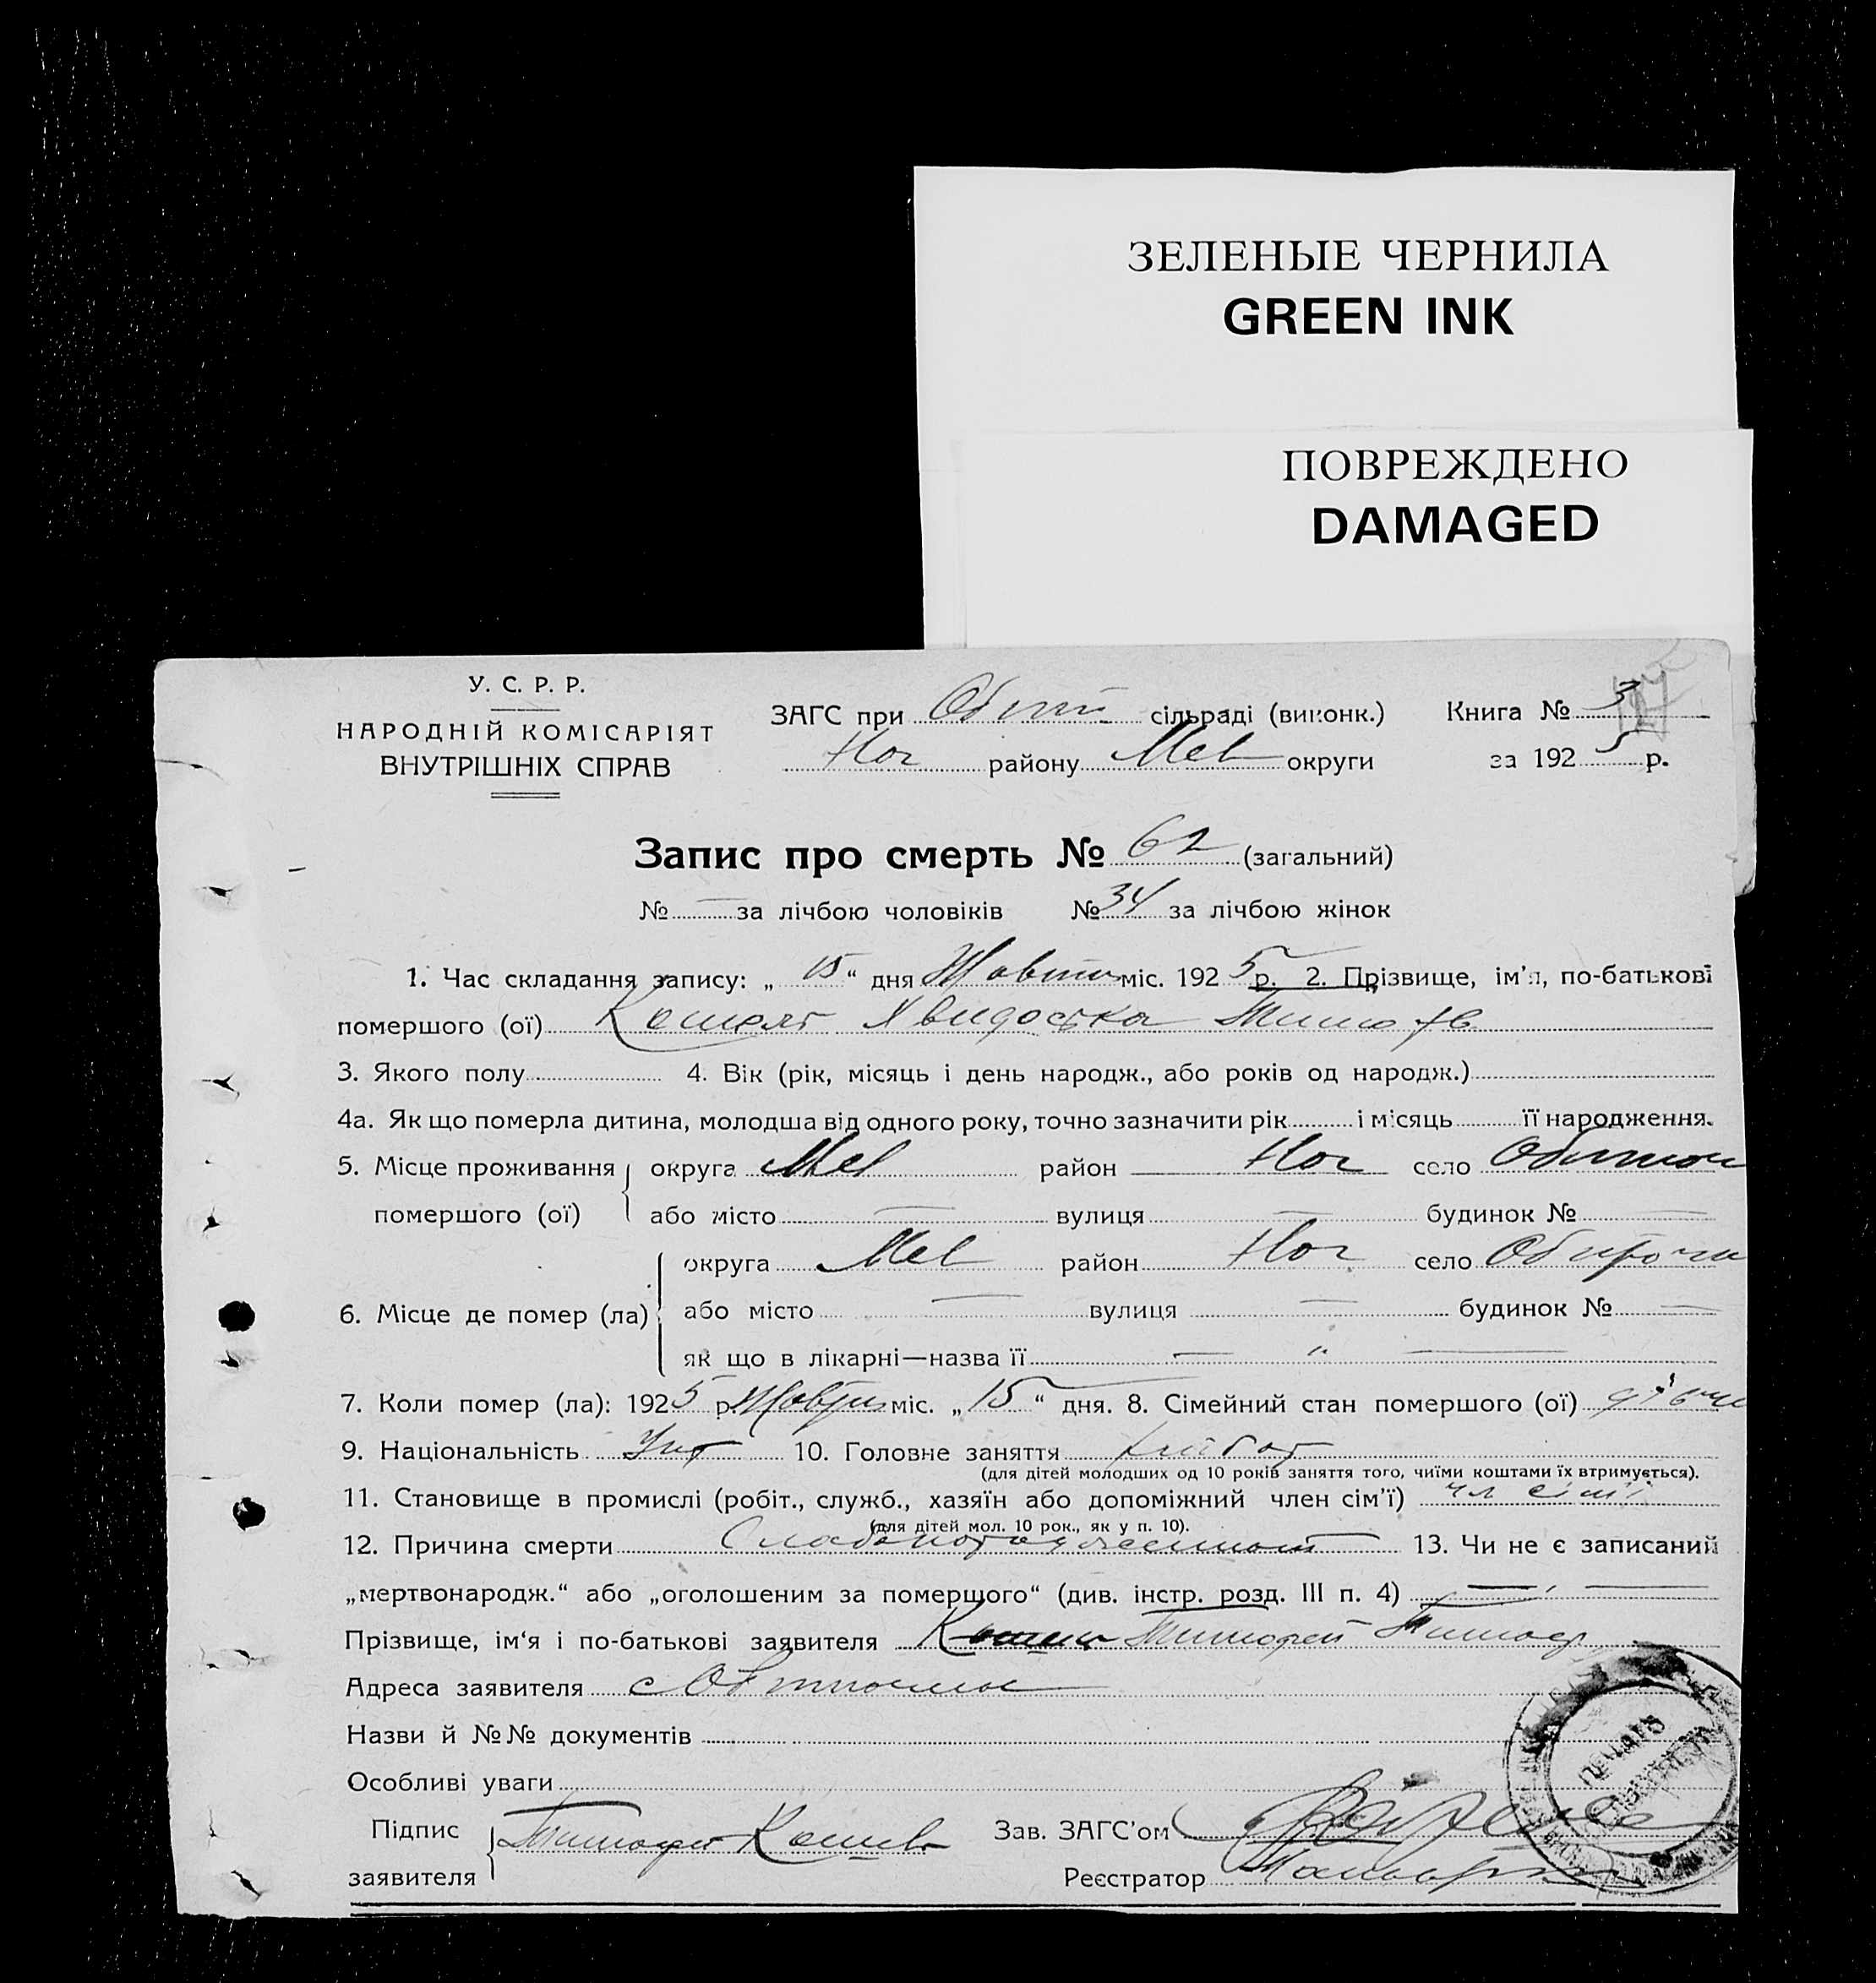 ЗЕЛЕНЫЕ ЧЕРНИЛА
GREEN INK
ПОВРЕЖДЕНО
DAMAGED
У. С. Р. Р.
НАРОДНІЙ КОМІСАРІЯТ
ВНУТРІШНІХ СПРАВ
ЗАГС при сільраді (виконк.)
Ног району Мел округи
Книга № 3
за 1925 р.
Запис про смерть № 62 (загальний)
№ — за лічбою чоловіків № 34 за лічбою жінок
1. Час складання запису: „ 15 “ дня Жовтн міс. 1925 р. 2. Прізвище, ім’я, по-батькові
помершого (ої)
3. Якого полу 4. Вік (рік, місяць і день народж., або років од народж.)
4а. Як що померла дитина, молодша від одного року, точно зазначити рік і місяць її народження.
5. Місце проживання округа Мел район Ног село
помершого (ої) або місто — вулиця — будинок № —
округа Мел район Ног село
6. Місце де помер (ла) або місто — вулиця — будинок № —
як що в лікарні—назва її — „ —
7. Коли помер (ла): 1925 р. міс. „ 15 “ дня. 8. Сімейний стан помершого (ої)
9. Національність Укр 10. Головне заняття хлібор
(для дітей молодших од 10 років заняття того, чиїми коштами їх втримується).
11. Становище в промислі (робіт., служб., хазяїн або допоміжний член сім’ї) чл сімї
(для дітей мол. 10 рок., як у п. 10).
12. Причина смерти 13. Чи не є записаний
„мертвонародж.“ або „оголошеним за помершого“ (див. інстр. розд. III п. 4) — —
Прізвище, ім‘я і по-батькові заявителя Тимофей Тимоф
Адреса заявителя с
Назви й №№ документів
Особливі уваги
Підпис
заявителя
Зав. ЗАГС’ом
Реєстратор
ПЕЧАТЬ